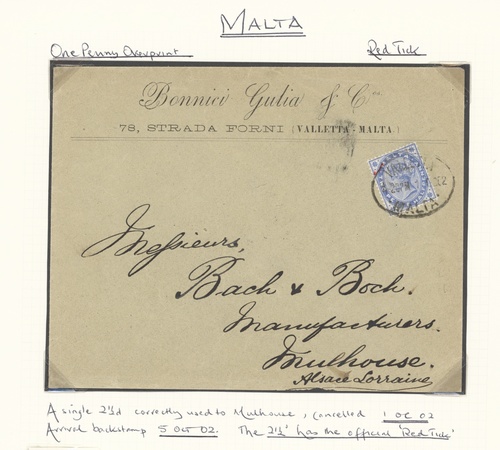 MALTA
One Penny Overprint
Red Tick
Bonnici Gulia & Co
78, STRADA FORNI (VALLETTA-MALTA.)
MALTA
Messieurs,
Bach & Boch.
Manufacturers.
Mulhouse.
Alsace Lorraine,
A single 2½d correctly used to Mulhouse, cancelled 1 OC 02
Arrival backstamp 5 OCT 02. The 2½' has the official 'Red Tick'